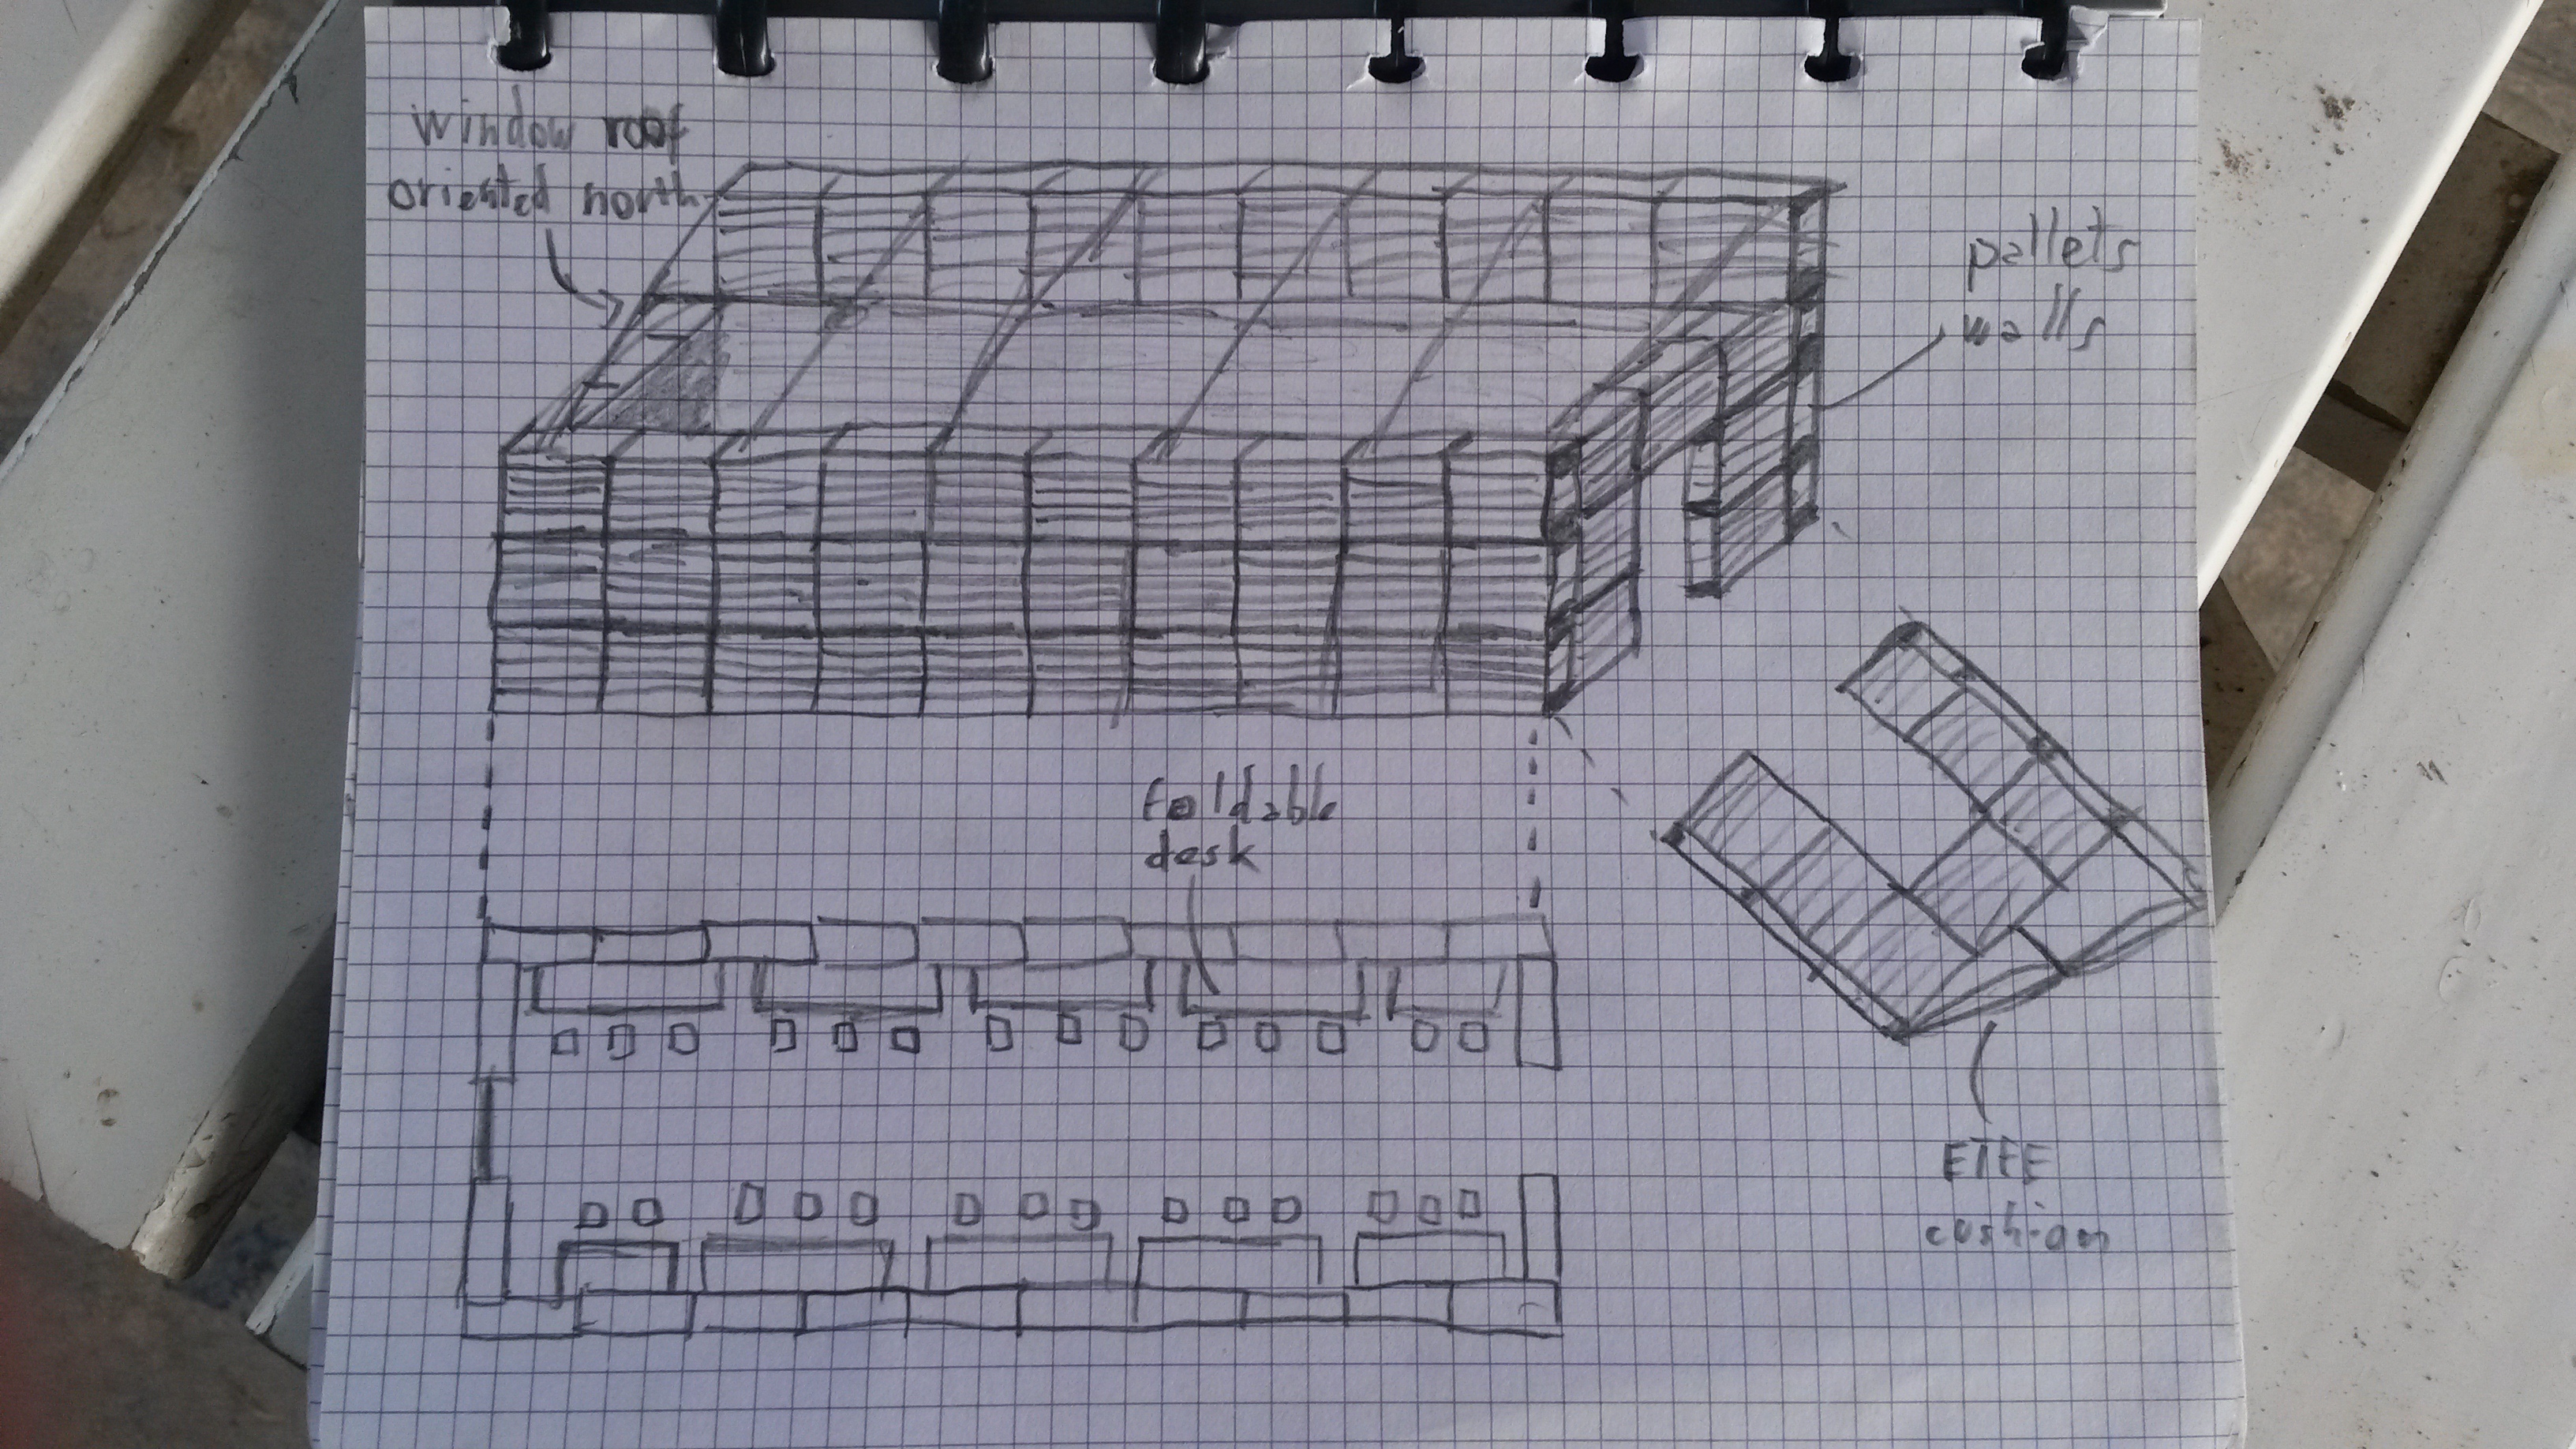 window roof
oriented north
pallets
walls
foldable
desk
ETFE
cushion